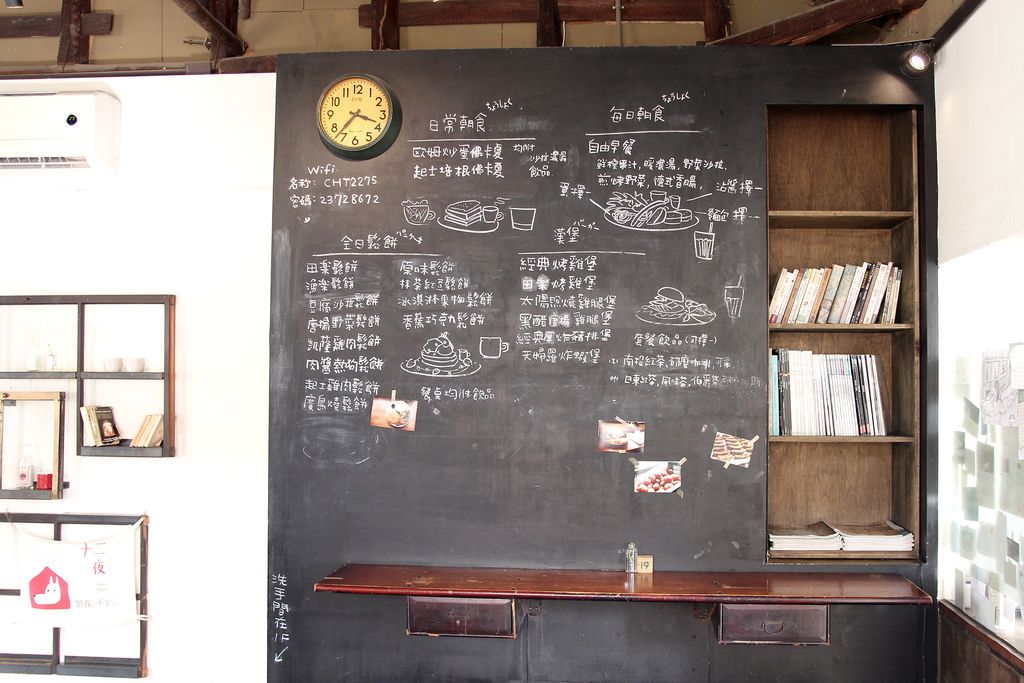 12
1
2
3
4
5
6
7
8
9
10
11
Wifi
名称: CHT2275
密碼: 23728672
日常朝食 ちょうしょく
歐姆炒蛋佛卡夏
起士培根佛卡夏
均附
沙拉濃湯
飲品
毎日朝食 ちょうしょく
自由早餐
鮮榨果汁, 暖濃湯, 野菜沙拉,
煎烤野菜, 德式香腸,
沾醬擇一
蛋擇一
麵包擇一
全日鬆餅
田樂鬆餅
漁樂鬆餅
豆腐沙拉鬆餅
唐揚野菜鬆餅
凱薩雞肉鬆餅
肉醬熱狗鬆餅
起士雞肉鬆餅
廣島燒鬆餅
原味鬆餅
抹茶紅豆鬆餅
冰淇淋果物鬆餅
香蕉巧克力鬆餅
餐桌均附飲品
漢堡 バーガー
經典烤雞堡
田樂烤雞堡
太陽照燒雞腿堡
黑醋唐揚雞腿堡
經典厚炸豬排堡
天婦羅炸蝦堡
套餐飲品(可擇一)
南投紅茶,
日東紅茶,
洗手間在1F
十二夜
19